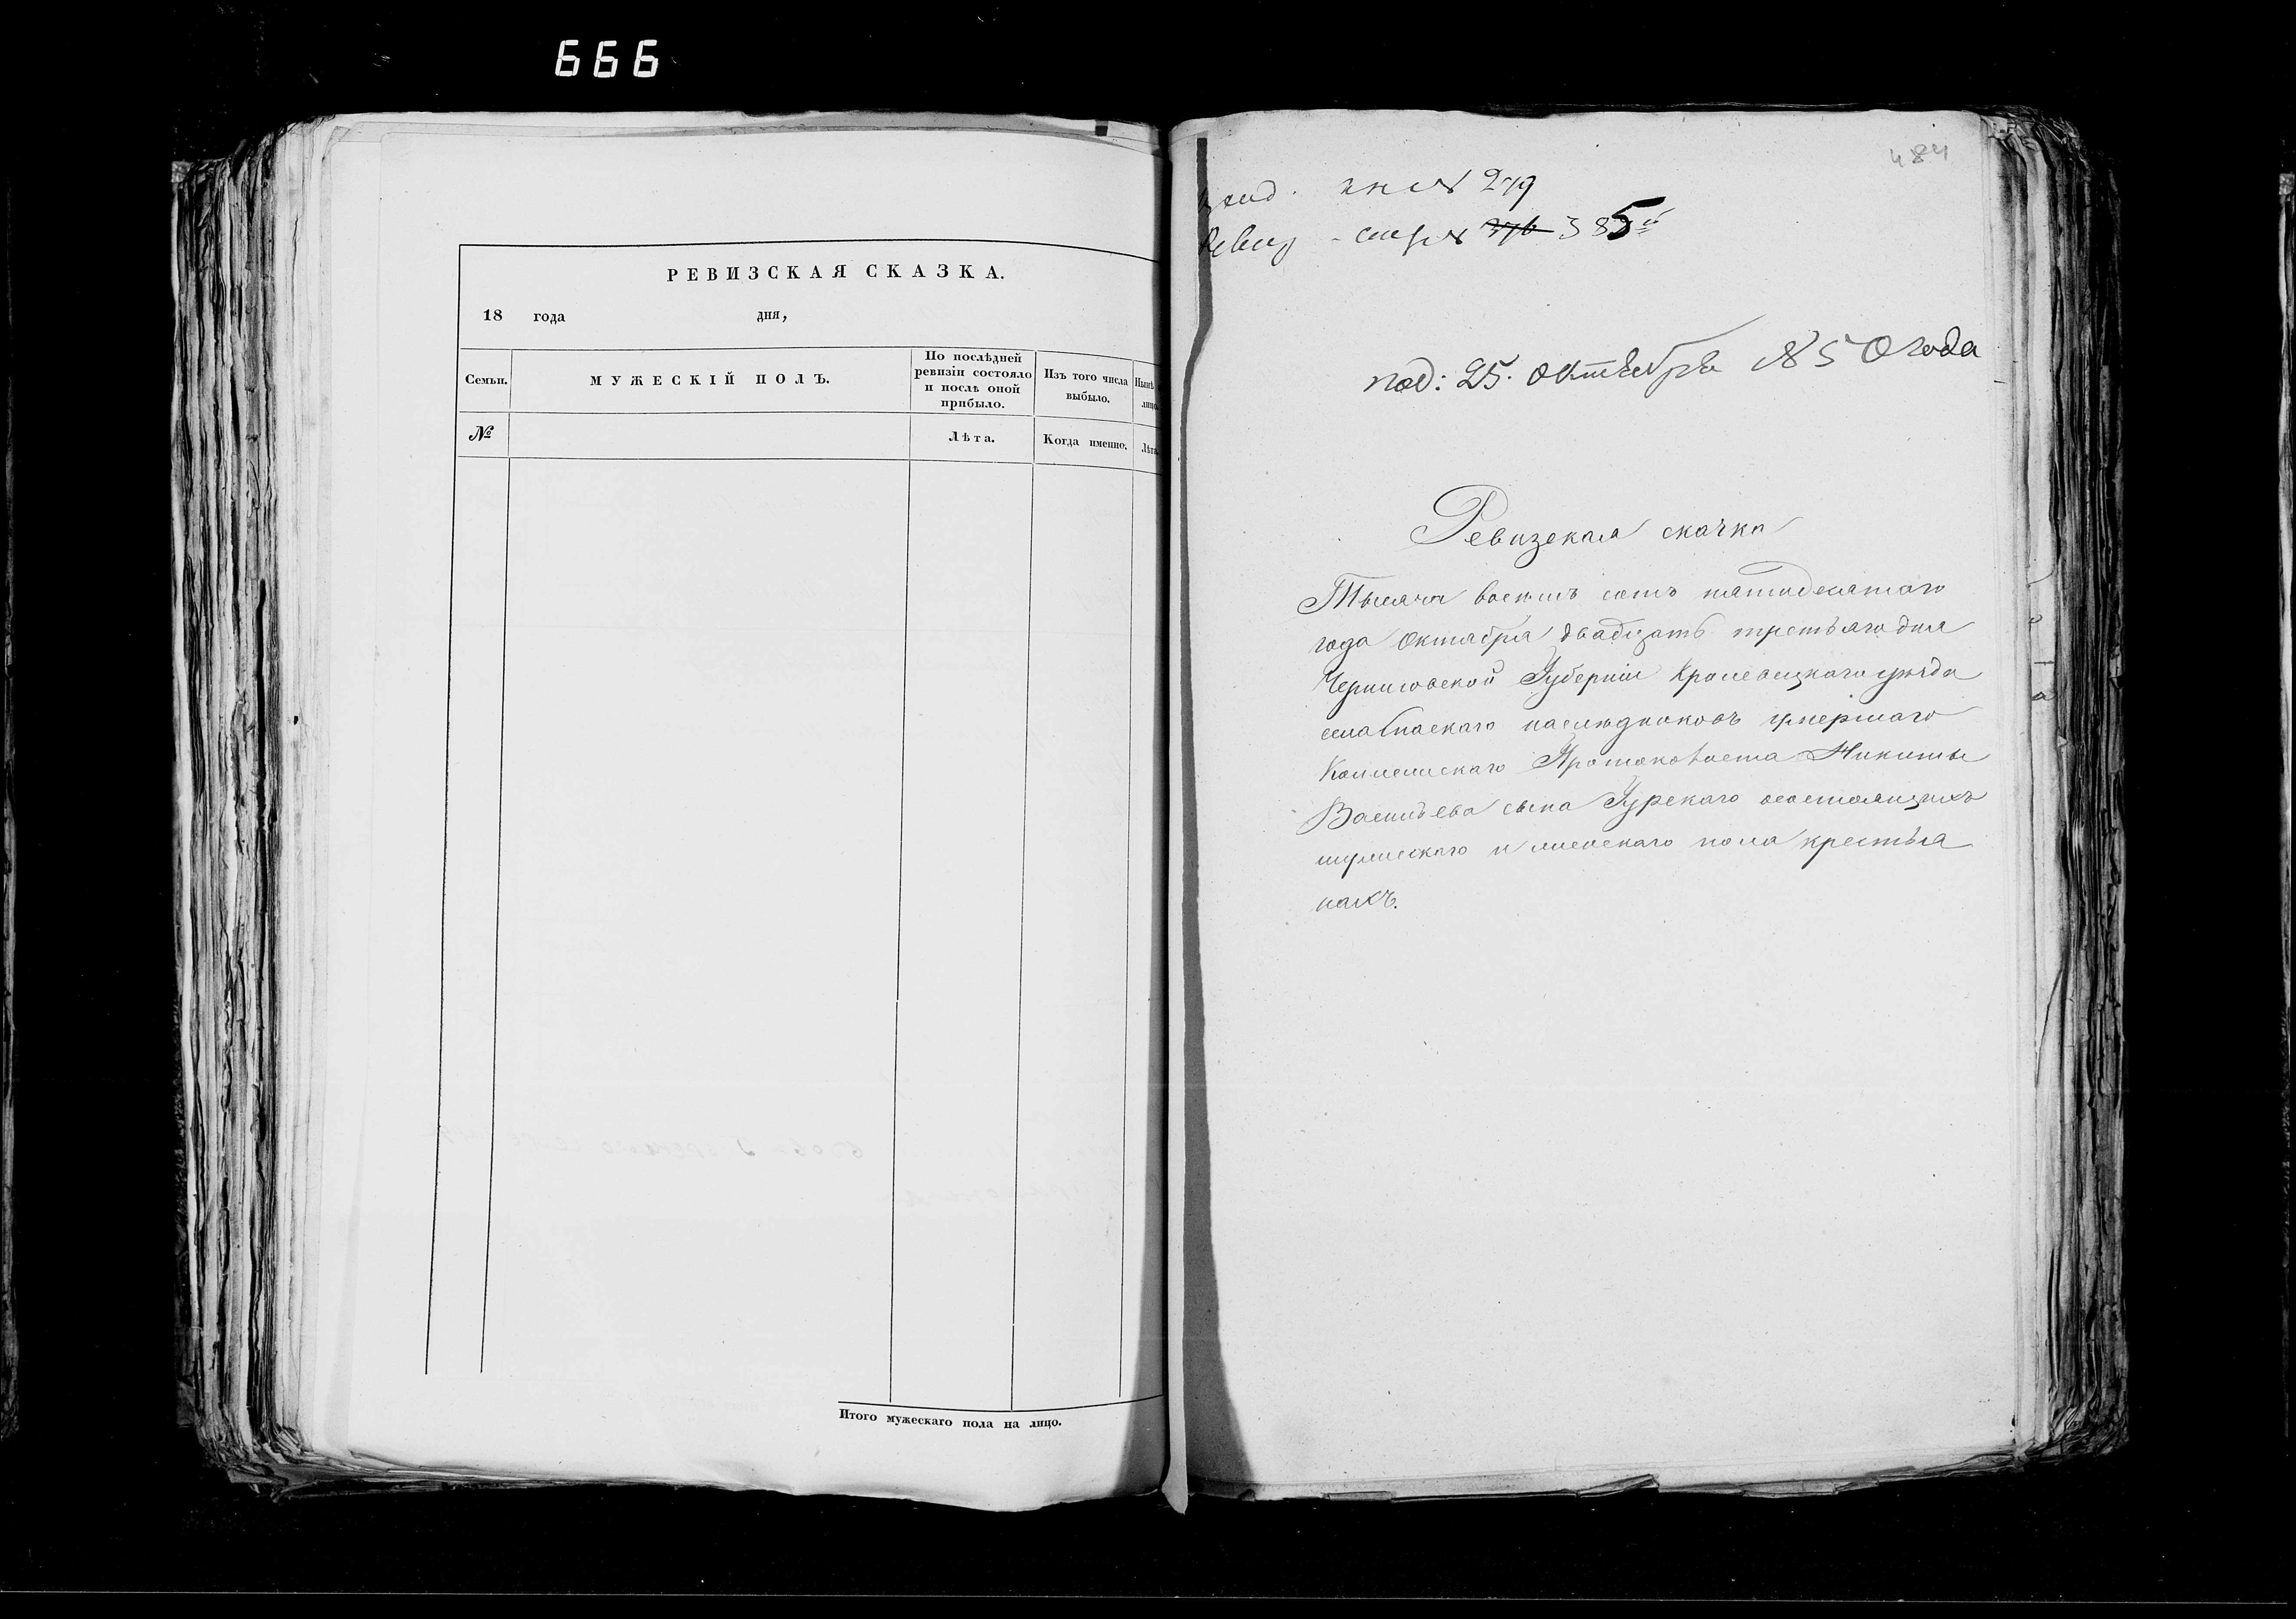 666
РЕВИЗСКАЯ СКАЗКА.
18 года дня,
Семьи.
МУЖЕСКІЙ ПОЛЪ.
По послѣдней
ревизіи состояло
и послѣ оной
прибыло.
Изъ того числа
выбыло.
№
Лѣта.
Когда именно.
Лѣта.
Итого мужескаго пола на лицо.
484
279
Ревиз 385
под: 25. октября 1850 года
Ревизская скачка
Тысяча восемь сотъ пятидесятого
года Октября двадцать третьяго дня
Черниговской Губерніи Кролевецкаго уезда
наследниковъ умершаго
Никиты
Васильева сына Гурскаго состоящихъ
мужескаго и женскаго пола крестья
нахъ.